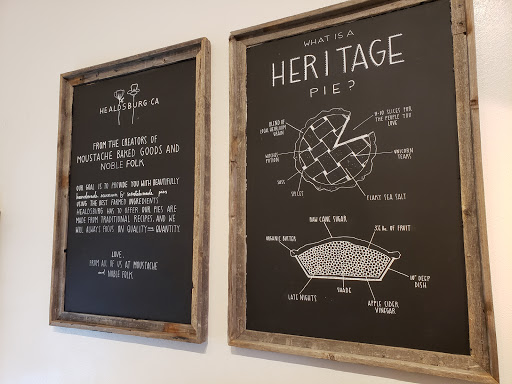 HEALDSBURG CA
FROM THE CREATORS OF
MOUSTACHE BAKED GOODS AND
NOBLE FOLK
OUR GOAL IS TO PROVIDE YOU WITH BEAUTIFULLY
pies
USING THE BEST FARMED INGREDIENTS
HEALDSBURG HAS TO OFFER. OUR PIES ARE
MADE FROM TRADITIONAL RECIPES, AND WE
WILL ALWAYS FOCUS ON QUALITY QUANTITY.
LOVE,
FROM ALL OF US AT MOUSTACHE
and NOBLE FOLK
WHAT IS A
HERITAGE
PIE?
BLEND OF
LOCAL HEIRLOOM
GRAIN
8-10 SLICES FOR
THE PEOPLE YOU
LOVE
UNICORN
TEARS
POTION
SASS
SPICES
FLAKY SEA SALT
RAW CANE SUGAR
LBS. OF FRUIT
ORGANIC BUTTER
10" DEEP
DISH
LATE NIGHTS
APPLE CIDER
VINEGAR